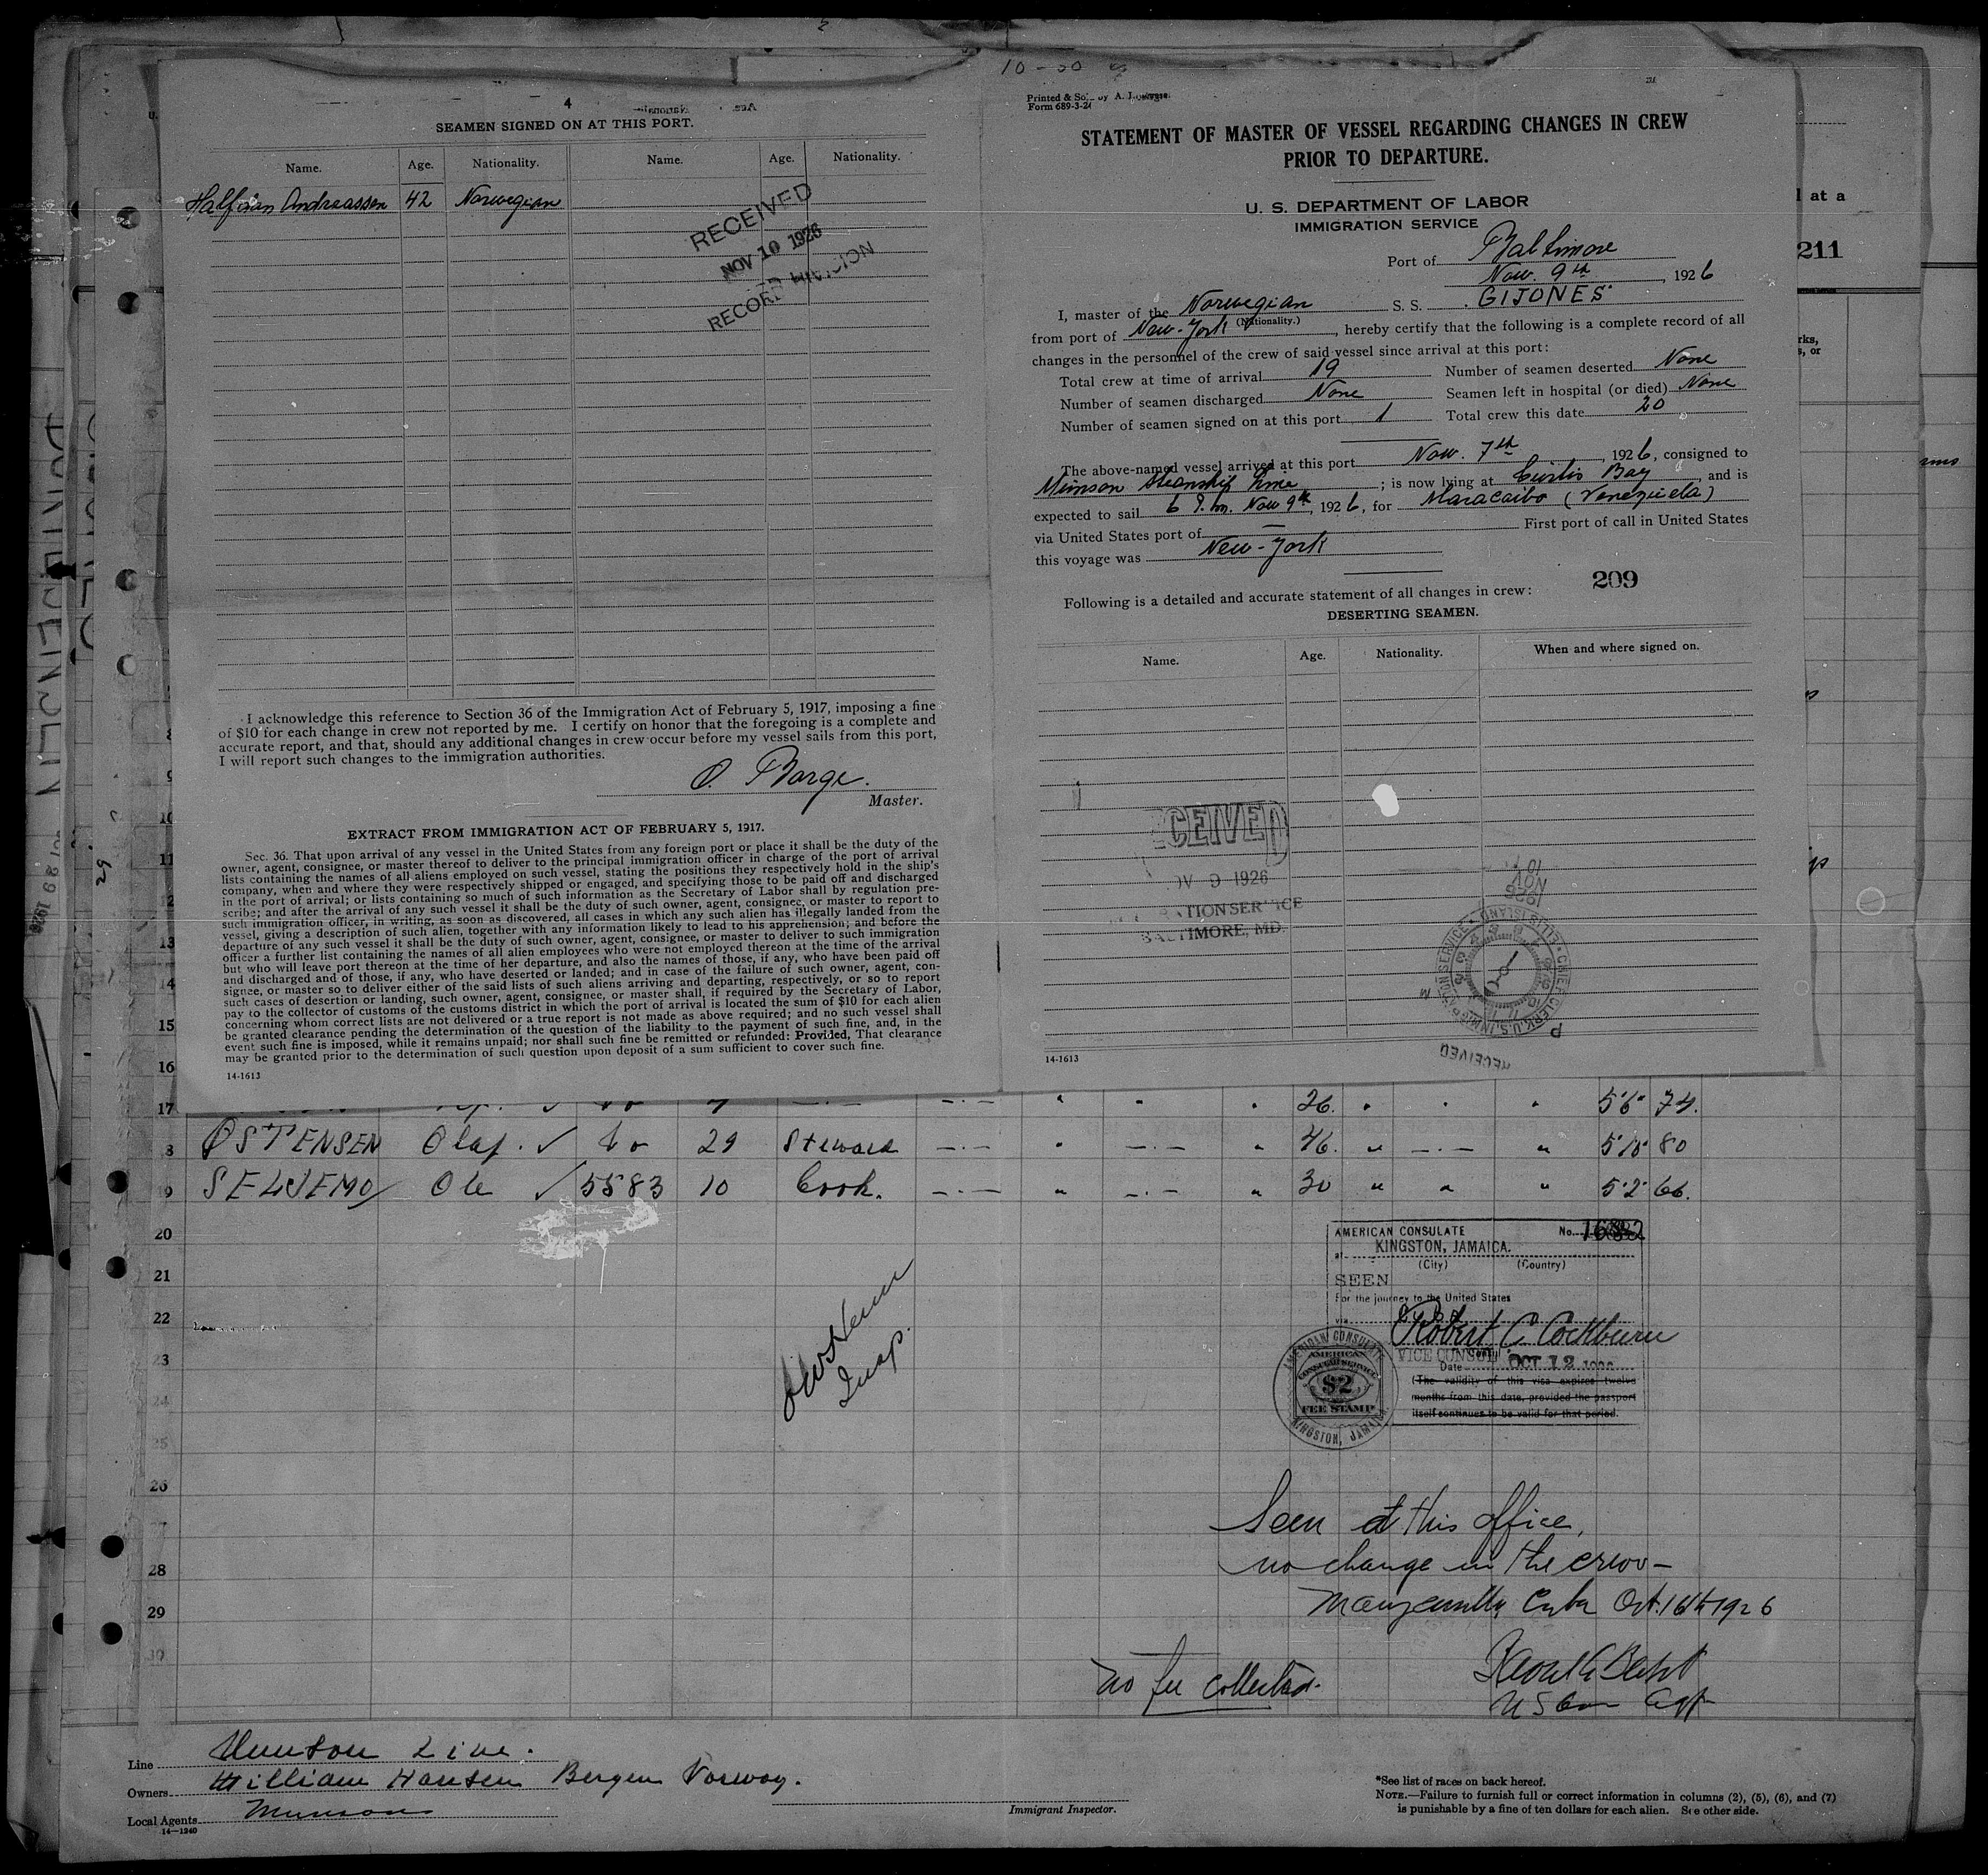 4
SEAMEN SIGNED ON AT THIS PORT.
Name. Age. Nationality. Name. Age. Nationality.
Halfdan Andreassen 42 Norwegian
RECEIVED
NOV 10 1926
RECORD DIVISION
I acknowledge this reference to Section 36 of the Immigration Act of February 5, 1917, imposing a fine
of $10 for each change in crew not reported by me. I certify on honor that the foregoing is a complete and
accurate report, and that, should any additional changes in crew occur before my vessel sails from this port,
I will report such changes to the immigration authorities.
O. Borge.
Master.
EXTRACT FROM IMMIGRATION ACT OF FEBRUARY 5, 1917.
Sec. 36. That upon arrival of any vessel in the United States from any foreign port or place it shall be the duty of the
owner, agent, consignee, or master thereof to deliver to the principal immigration officer in charge of the port of arrival
lists containing the names of all aliens employed on such vessel, stating the positions they respectively hold in the ship's
company, when and where they were respectively shipped or engaged, and specifying those to be paid off and discharged
in the port of arrival; or lists containing so much of such information as the Secretary of Labor shall by regulation pre-
scribe; and after the arrival of any such vessel it shall be the duty of such owner, agent, consignee, or master to report to
such immigration officer, in writing, as soon as discovered, all cases in which any such alien has illegally landed from the
vessel, giving a description of such alien, together with any information likely to lead to his apprehension; and before the
departure of any such vessel it shall be the duty of such owner, agent, consignee, or master to deliver to such immigration
officer a further list containing the names of all alien employees who were not employed thereon at the time of the arrival
but who will leave port thereon at the time of her departure, and also the names of those, if any, who have been paid off
and discharged and of those, if any, who have deserted or landed; and in case of the failure of such owner, agent, con-
signee, or master so to deliver either of the said lists of such aliens arriving and departing, respectively, or so to report
such cases of desertion or landing, such owner, agent, consignee, or master shall, if required by the Secretary of Labor,
pay to the collector of customs of the customs district in which the port of arrival is located the sum of $10 for each alien
concerning whom correct lists are not delivered or a true report is not made as above required; and no such vessel shall
be granted clearance pending the determination of the question of the liability to the payment of such fine, and, in the
event such fine is imposed, while it remains unpaid; nor shall such fine be remitted or refunded: Provided, That clearance
may be granted prior to the determination of such question upon deposit of a sum sufficient to cover such fine.
14-1613
Printed & Sold by A.
Form 689-3-24
STATEMENT OF MASTER OF VESSEL REGARDING CHANGES IN CREW
PRIOR TO DEPARTURE.
U. S. DEPARTMENT OF LABOR
IMMIGRATION SERVICE
Port of Baltimore
Nov. 9th, 1926
I, master of the Norwegian S. S. GIJONES
(Nationality.)
from port of New-York, hereby certify that the following is a complete record of all
changes in the personnel of the crew of said vessel since arrival at this port:
Total crew at time of arrival 19 Number of seamen deserted None
Number of seamen discharged None Seamen left in hospital (or died) None
Number of seamen signed on at this port 1 Total crew this date 20
The above-named vessel arrived at this port Nov. 7th, 1926, consigned to
Munson Steamship Line; is now lying at Curtis Bay and is
expected to sail 6 P.m. Nov 9th, 1926, for Maracaibo (Venezuela)
via United States port of — First port of call in United States
this voyage was New-York
209
Following is a detailed and accurate statement of all changes in crew:
DESERTING SEAMEN.
Name. Age. Nationality. When and where signed on.
CEIVED
OV 9 1926
ATION SERVICE
BALTIMORE, MD.
10
NOV
1926
CHIEF CLERK, U.S. IMMIGRATION SERVICE ELLIS ISLAND
RECEIVED
14-1613
l at a
211
rks,
s, or
9
10
11
12
13
14
15
16
17 26. 5'6" 74.
8 ØSTENSEN Olaf. ✓ do 29 Steward 46. 80
9 SELJEMO Ole ✓ 5583 10 Cook. 30 5'2" 66.
20
21
22
23
24
25
26
27
28
29
30
AMERICAN CONSULATE No. 1682
at KINGSTON, JAMAICA.
(City) (Country)
SEEN
For the journey to the United States
via Cuba
Robert C. Cockburn
VICE CONSUL
Date OCT 12
(The validity of this visa expires twelve
months from this date, provided the passport
itself continues to be valid for that period.
AMERICAN CONSULATE
AMERICAN
CONSULAR SERVICE
$2
FEE STAMP
KINGSTON, JAMAICA
Insp.
Seen at this office,
no change in the crew—
Manzanillo, Cuba Oct. 16th 1926
no fee collected.
Line Munson Line.
Owners William Hansen Bergen Norway.
Local Agents Munson
14—1240
Immigrant Inspector.
*See list of races on back hereof.
NOTE.—Failure to furnish full or correct information in columns (2), (5), (6), and (7)
is punishable by a fine of ten dollars for each alien. See other side.